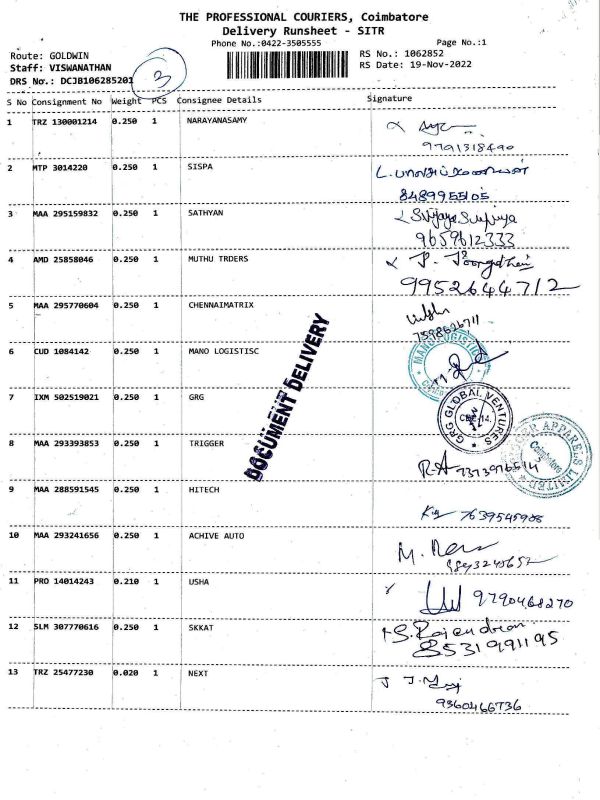 THE PROFESSIONAL COURIERS, Coimbatore
Delivery Runsheet - SITR
Phone No.:0422-3505555 Page No.:1
Route: GOLDWIN RS No.: 1062852
Staff: VISWANATHAN RS Date: 19-Nov-2022
DRS No.: DCJB106285201 3
S No Consignment No Weight PCS Consignee Details Signature
1 TRZ 130001214 0.250 1 NARAYANASAMY
9791318490
2 MTP 3014220 0.250 1 SISPA
8489955105
3 MAA 295159832 0.250 1 SATHYAN
9659612333
4 AMD 25858046 0.250 1 MUTHU TRDERS
9952644712
5 MAA 295770604 0.250 1 CHENNAIMATRIX
7598626711
6 CUD 1084142 0.250 1 MANO LOGISTISC
DOCUMENT DELIVERY
7 IXM 502519021 0.250 1 GRG
GRG GLOBAL VENTURES
CBE-14.
8 MAA 293393853 0.250 1 TRIGGER
APPARELS LIMITED
Coimbatore
9 MAA 288591545 0.250 1 HITECH
7639545908
10 MAA 293241656 0.250 1 ACHIVE AUTO
11 PRO 14014243 0.210 1 USHA
9790468270
12 SLM 307770616 0.250 1 SKKAT
S. Rajendran
8531991195
13 TRZ 25477230 0.020 1 NEXT
9360466736